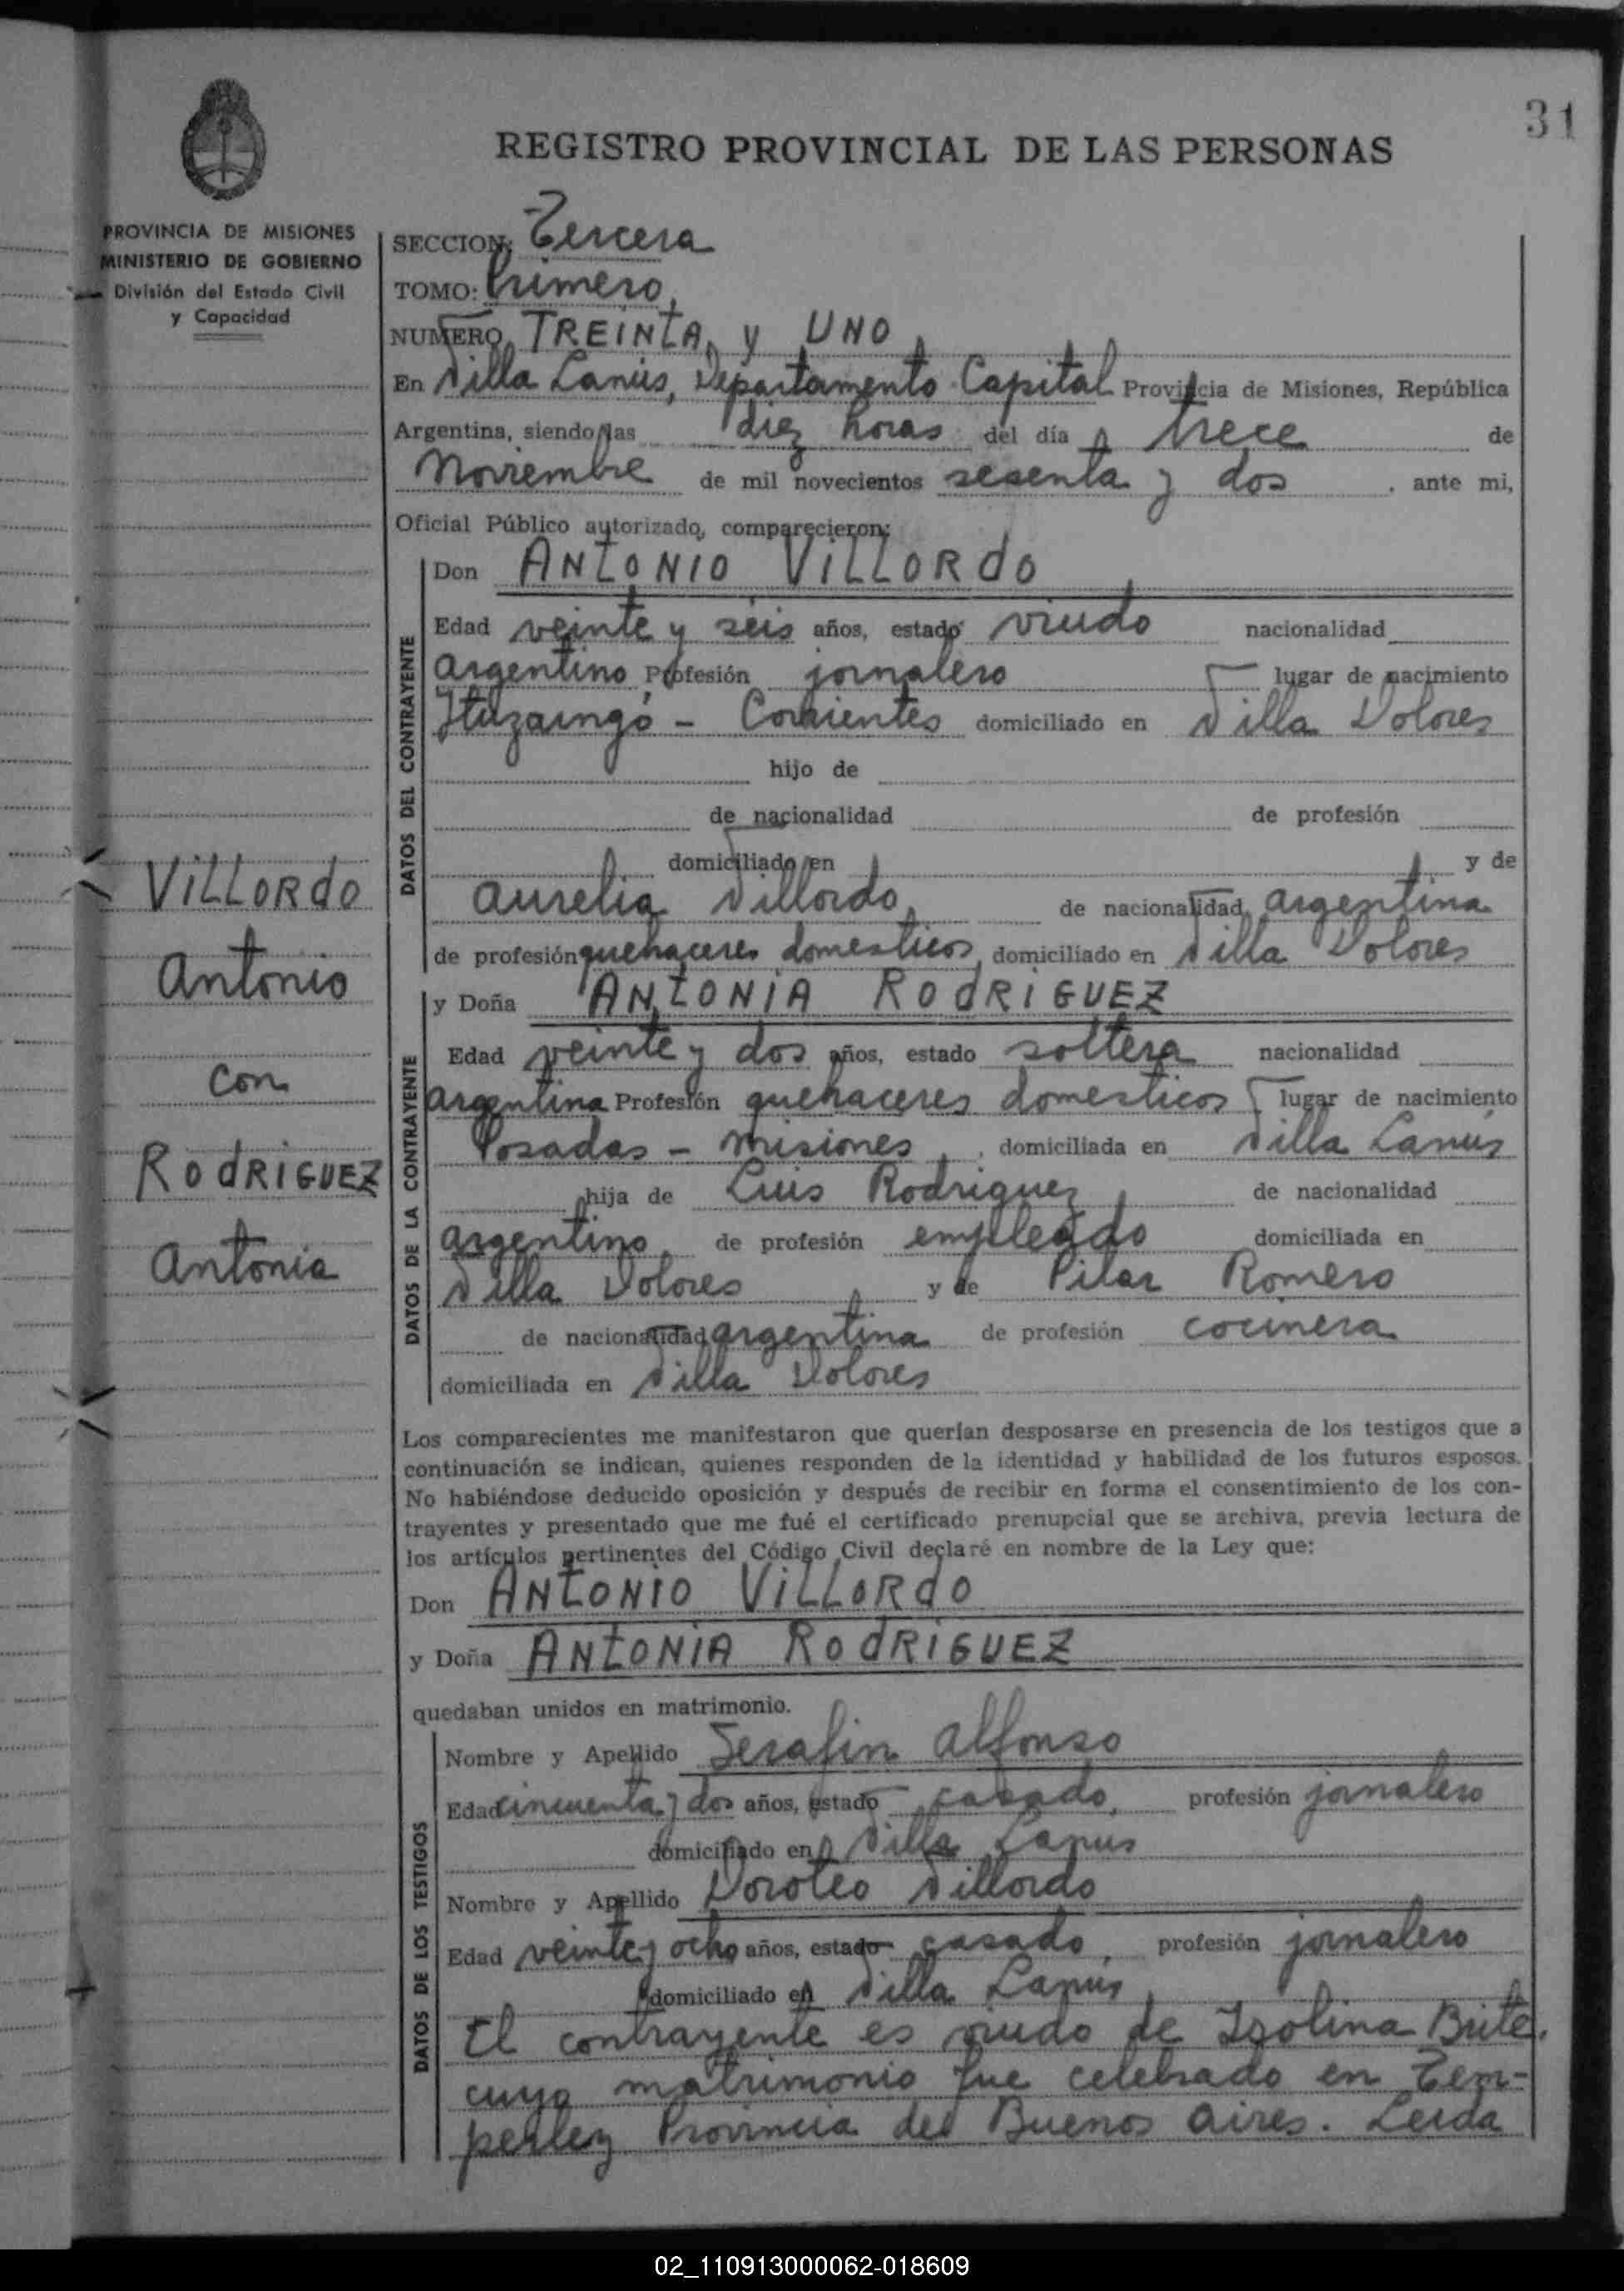 31
REGISTRO PROVINCIAL DE LAS PERSONAS
PROVINCIA DE MISIONES
MINISTERIO DE GOBIERNO
División del Estado Civil
y Capacidad
SECCION: Tercera
TOMO: Primero
NUMERO TREINTA y UNO
En Villa Lanús, Departamento Capital Provincia de Misiones, República
Argentina, siendo las diez horas del día trece de
Noviembre de mil novecientos sesenta y dos, ante mi,
Oficial Público autorizado, comparecieron:
DATOS DEL CONTRAYENTE
Don ANTONIO VILLORDO
Edad veinte y seis años, estado viudo nacionalidad
argentino Profesión jornalero lugar de nacimiento
Ituzaingó - Corrientes domiciliado en Villa Dolores
hijo de
de nacionalidad de profesión
domiciliado en y de
Aurelia Villordo de nacionalidad argentina
de profesión quehaceres domesticos domiciliado en Villa Dolores
VILLORDO
Antonio
con
RODRIGUEZ
Antonia
DATOS DE LA CONTRAYENTE
y Doña ANTONIA RODRIGUEZ
Edad veinte y dos años, estado soltera nacionalidad
argentina Profesión quehaceres domesticos lugar de nacimiento
Posadas - Misiones, domiciliada en Villa Lanús
hija de Luis Rodriguez de nacionalidad
argentino de profesión empleado domiciliada en
Villa Dolores y de Pilar Romero
de nacionalidad argentina de profesión cocinera
domiciliada en Villa Dolores
Los comparecientes me manifestaron que querían desposarse en presencia de los testigos que a
continuación se indican, quienes responden de la identidad y habilidad de los futuros esposos.
No habiéndose deducido oposición y después de recibir en forma el consentimiento de los con-
trayentes y presentado que me fué el certificado prenupcial que se archiva, previa lectura de
los artículos pertinentes del Código Civil declaré en nombre de la Ley que:
Don ANTONIO VILLORDO
y Doña ANTONIA RODRIGUEZ
quedaban unidos en matrimonio.
DATOS DE LOS TESTIGOS
Nombre y Apellido Serafin Alfonso
Edad cincuenta y dos años, estado casado, profesión jornalero
domiciliado en Villa Lanus
Nombre y Apellido Doroteo Villordo
Edad veinte y ocho años, estado casado, profesión jornalero
domiciliado en Villa Lanús
El contrayente es viudo de Isolina Brite,
cuyo matrimonio fue celebrado en Tem-
perley Provincia de Buenos Aires. Leida
02_110913000062-018609